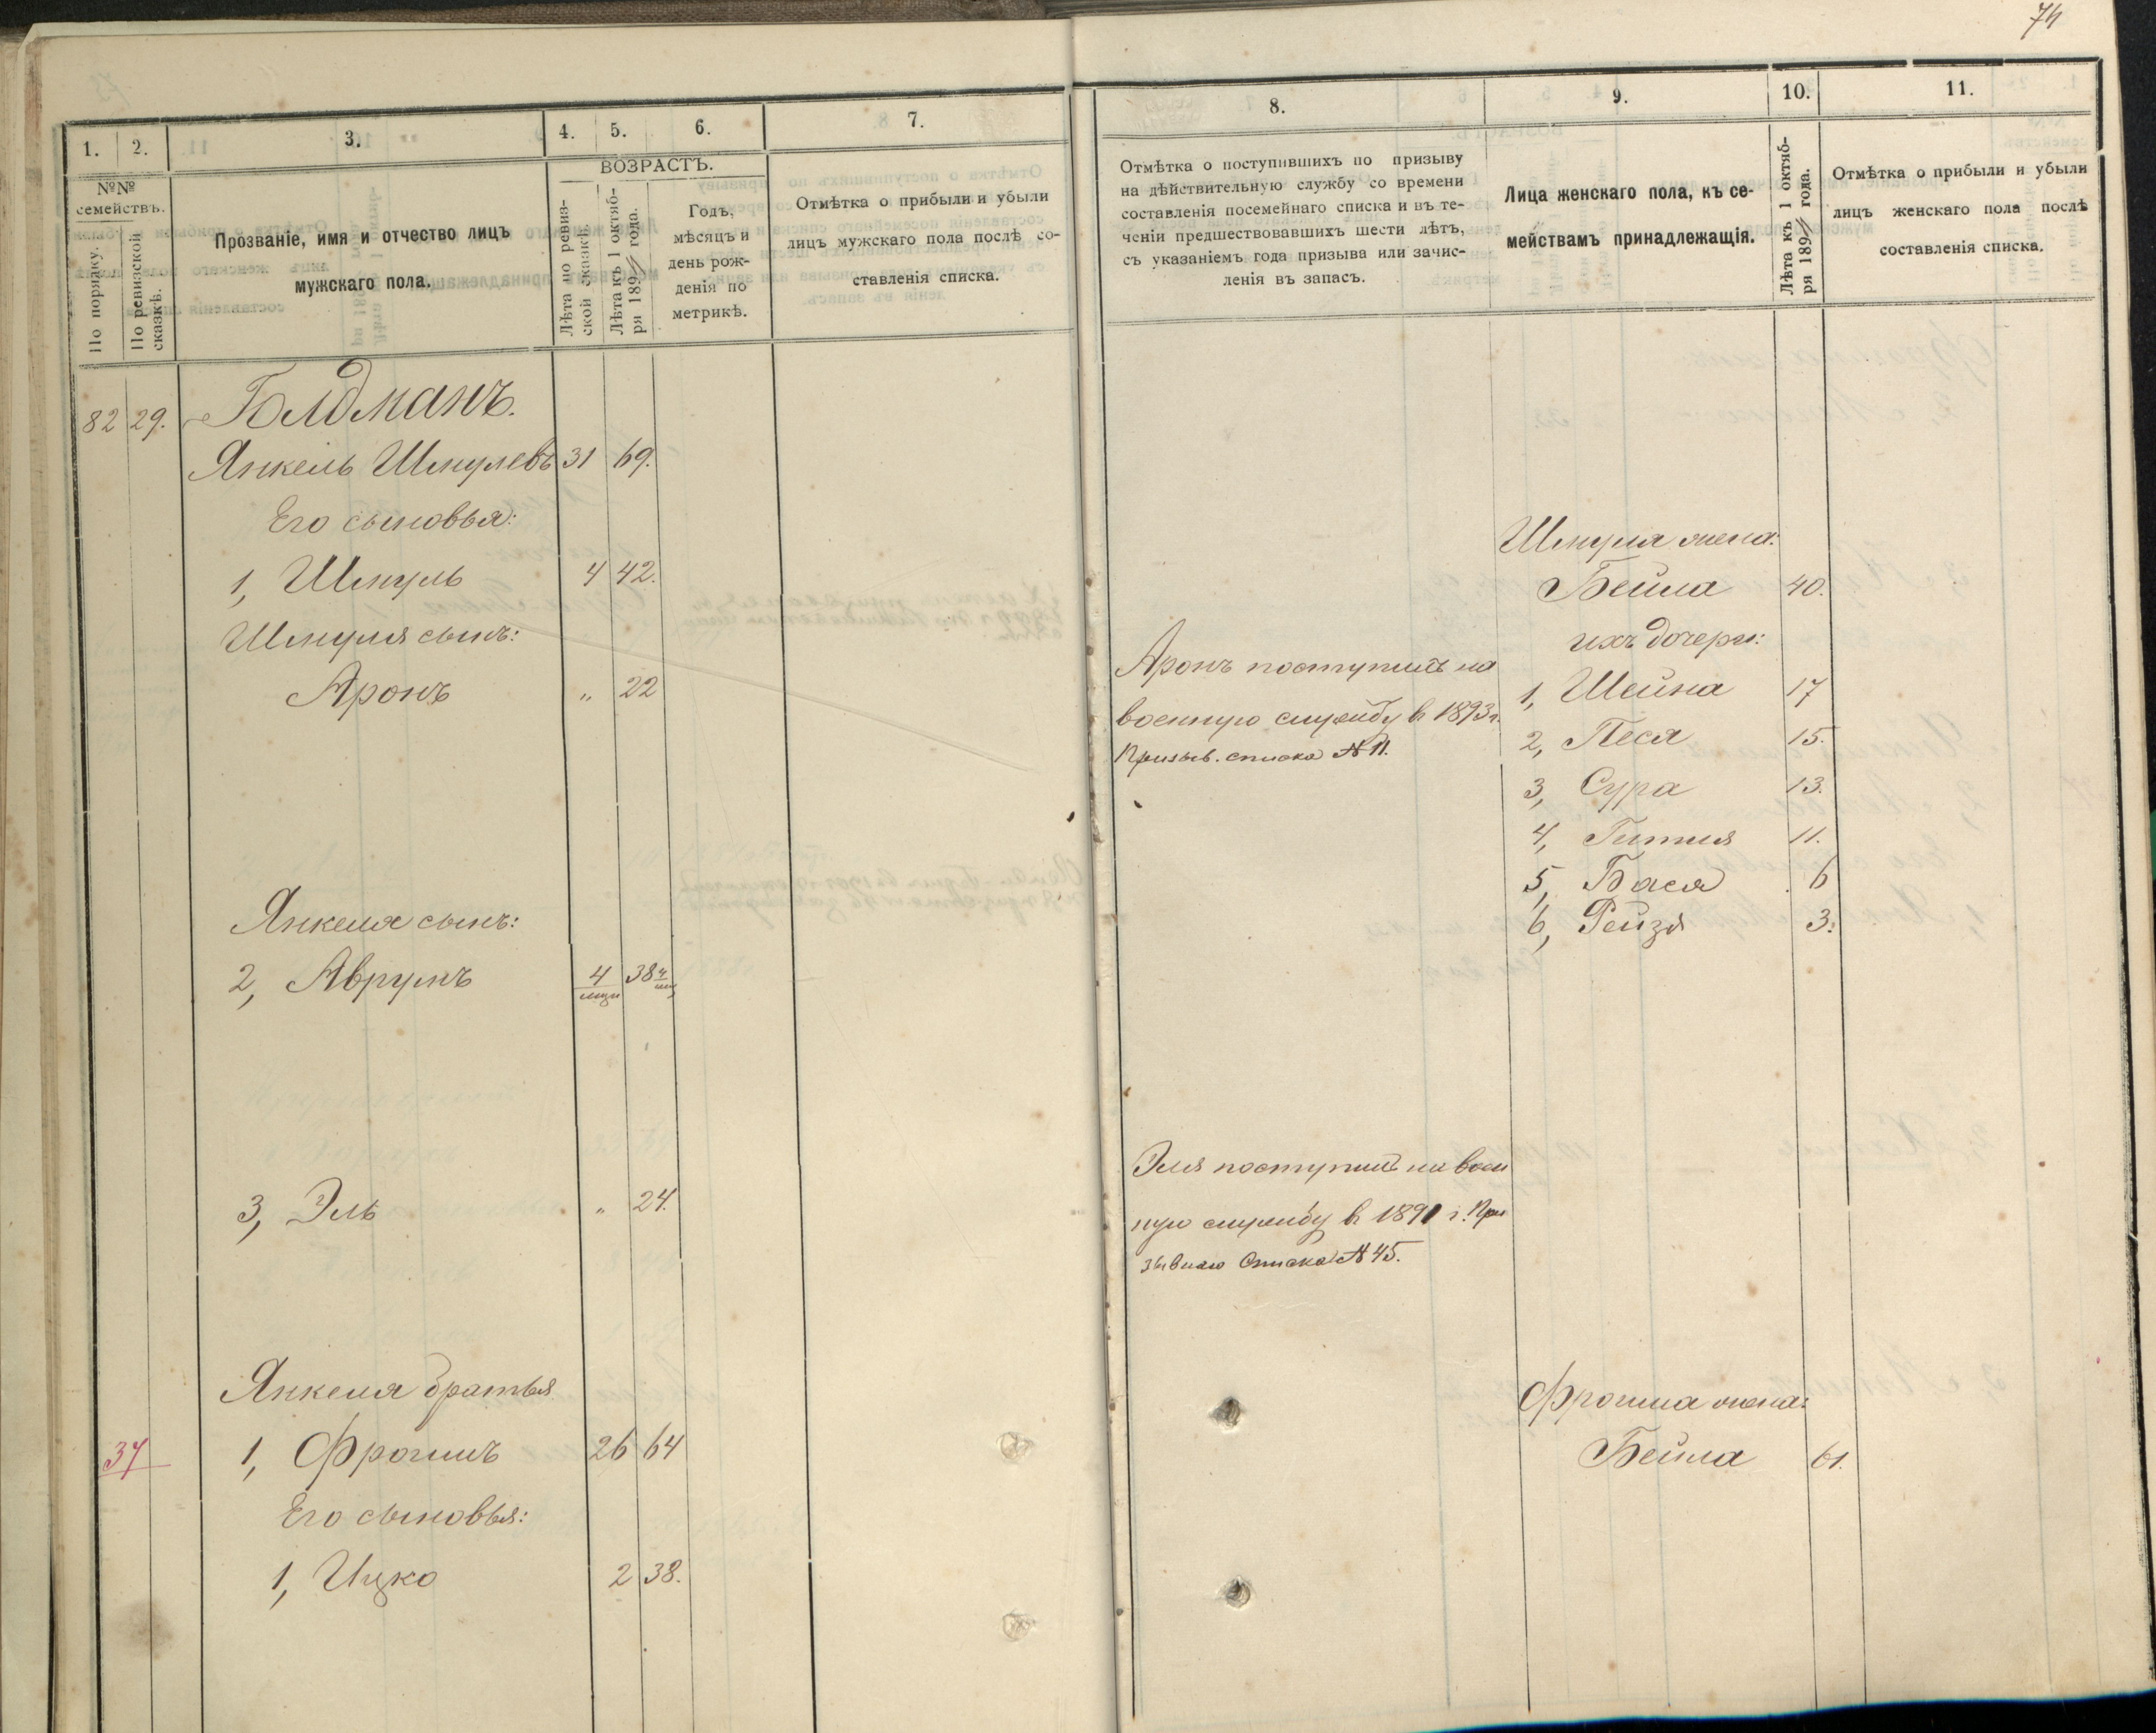 74
1.
2.
3.
4.
5.
6.
7.
№№
семействъ.
По порядку.
По ревизской
сказкѣ.
Прозваніе, имя и отчество лицъ
мужскаго пола.
ВОЗРАСТЪ.
Лѣта по ревиз-
ской сказкѣ.
Лѣта къ 1 октяб-
ря 189 года.
Годъ,
мѣсяцъ и
день рож-
денія по
метрикѣ.
Отмѣтка о прибыли и убыли
лицъ мужскаго пола послѣ со-
ставленія списка.
82 29.
Янкель Шмулевъ 31 69.
Его сыновья:
1, Шмуль 4 42.
Шмуля сынъ:
Аронъ „ 22
Янкеля сынъ:
2, Аврумъ 4 38 4
3, Эль „ 24.
Янкеля братья
37 1, Фроимъ 26 64
Его сыновья:
1, Ицко 2 38.
8.
9.
10.
11.
Отмѣтка о поступившихъ по призыву
на дѣйствительную службу со времени
составленія посемейнаго списка и въ те-
ченіи предшествовавшихъ шести лѣтъ,
съ указаніемъ года призыва или зачис-
ленія въ запасъ.
Лица женскаго пола, къ се-
мействамъ принадлежащія.
Лѣта къ 1 октяб-
ря 189 года.
Отмѣтка о прибыли и убыли
лицъ женскаго пола послѣ
составленія списка.
Шмуля жена:
Бейла 40.
ихъ дочери:
Аронъ поступилъ на
военную службу в 1893 г.
Призыв. списка № 11.
1, Шейна 17
2, Песя 15.
3, Сура 13.
4, Гитля 11.
5, Бася 6
6, Рейзя 3.
Эля поступилъ на воен
ную службу в 1891 г. При
зывнаго Списка № 45.
Фроима жена:
Бейла 61.